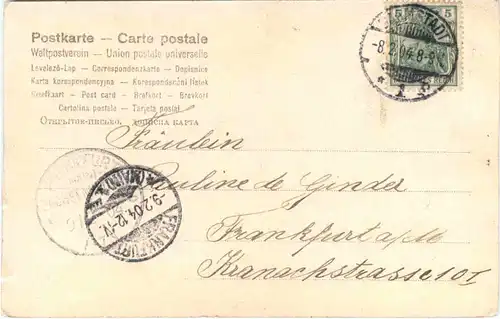 Postkarte — Carte postale
Weltpostverein — Union postale universelle
Levelező-Lap — Correspondenzkarte — Dopisnice
Karta korespondencyjna — Korespondenční lístek
Briefkaart — Post card — Brefkort — Brevkort
Cartolina postale — Tarjeta postal
ОТКРЫТОЕ-ПИСЬМО. ДОПИСНА КАРТА
5 5
-8.2.04.8-9
* 1
FRANKFURT
(MAIN)
-9.2.04.12-1V.
FRANKFURT
Fräulein
Pauline de Ginder
Frankfurt a/M
Kranachstrasse 10 I